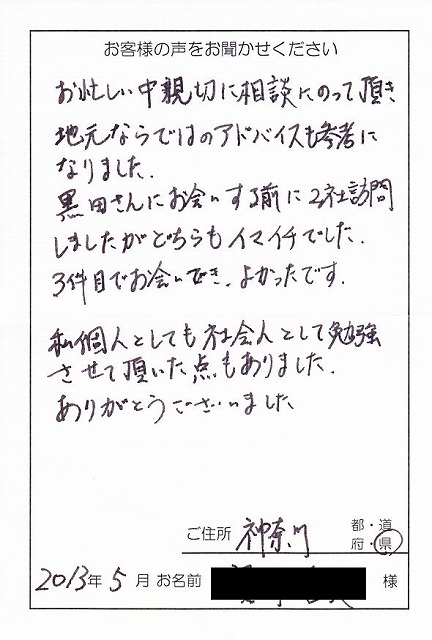 お客様の声をお聞かせください
お忙しい中親切に相談にのって頂き
地元ならではのアドバイスも参考に
なりました.
黒田さんにお会いする前に2社訪問
しましたがどちらもイマイチでした.
3件目でお会いでき、よかったです.
私個人としても社会人として勉強
させて頂いた点もありました.
ありがとうございました
ご住所 神奈川 都・道
府・県
2013年 5月 お名前 様